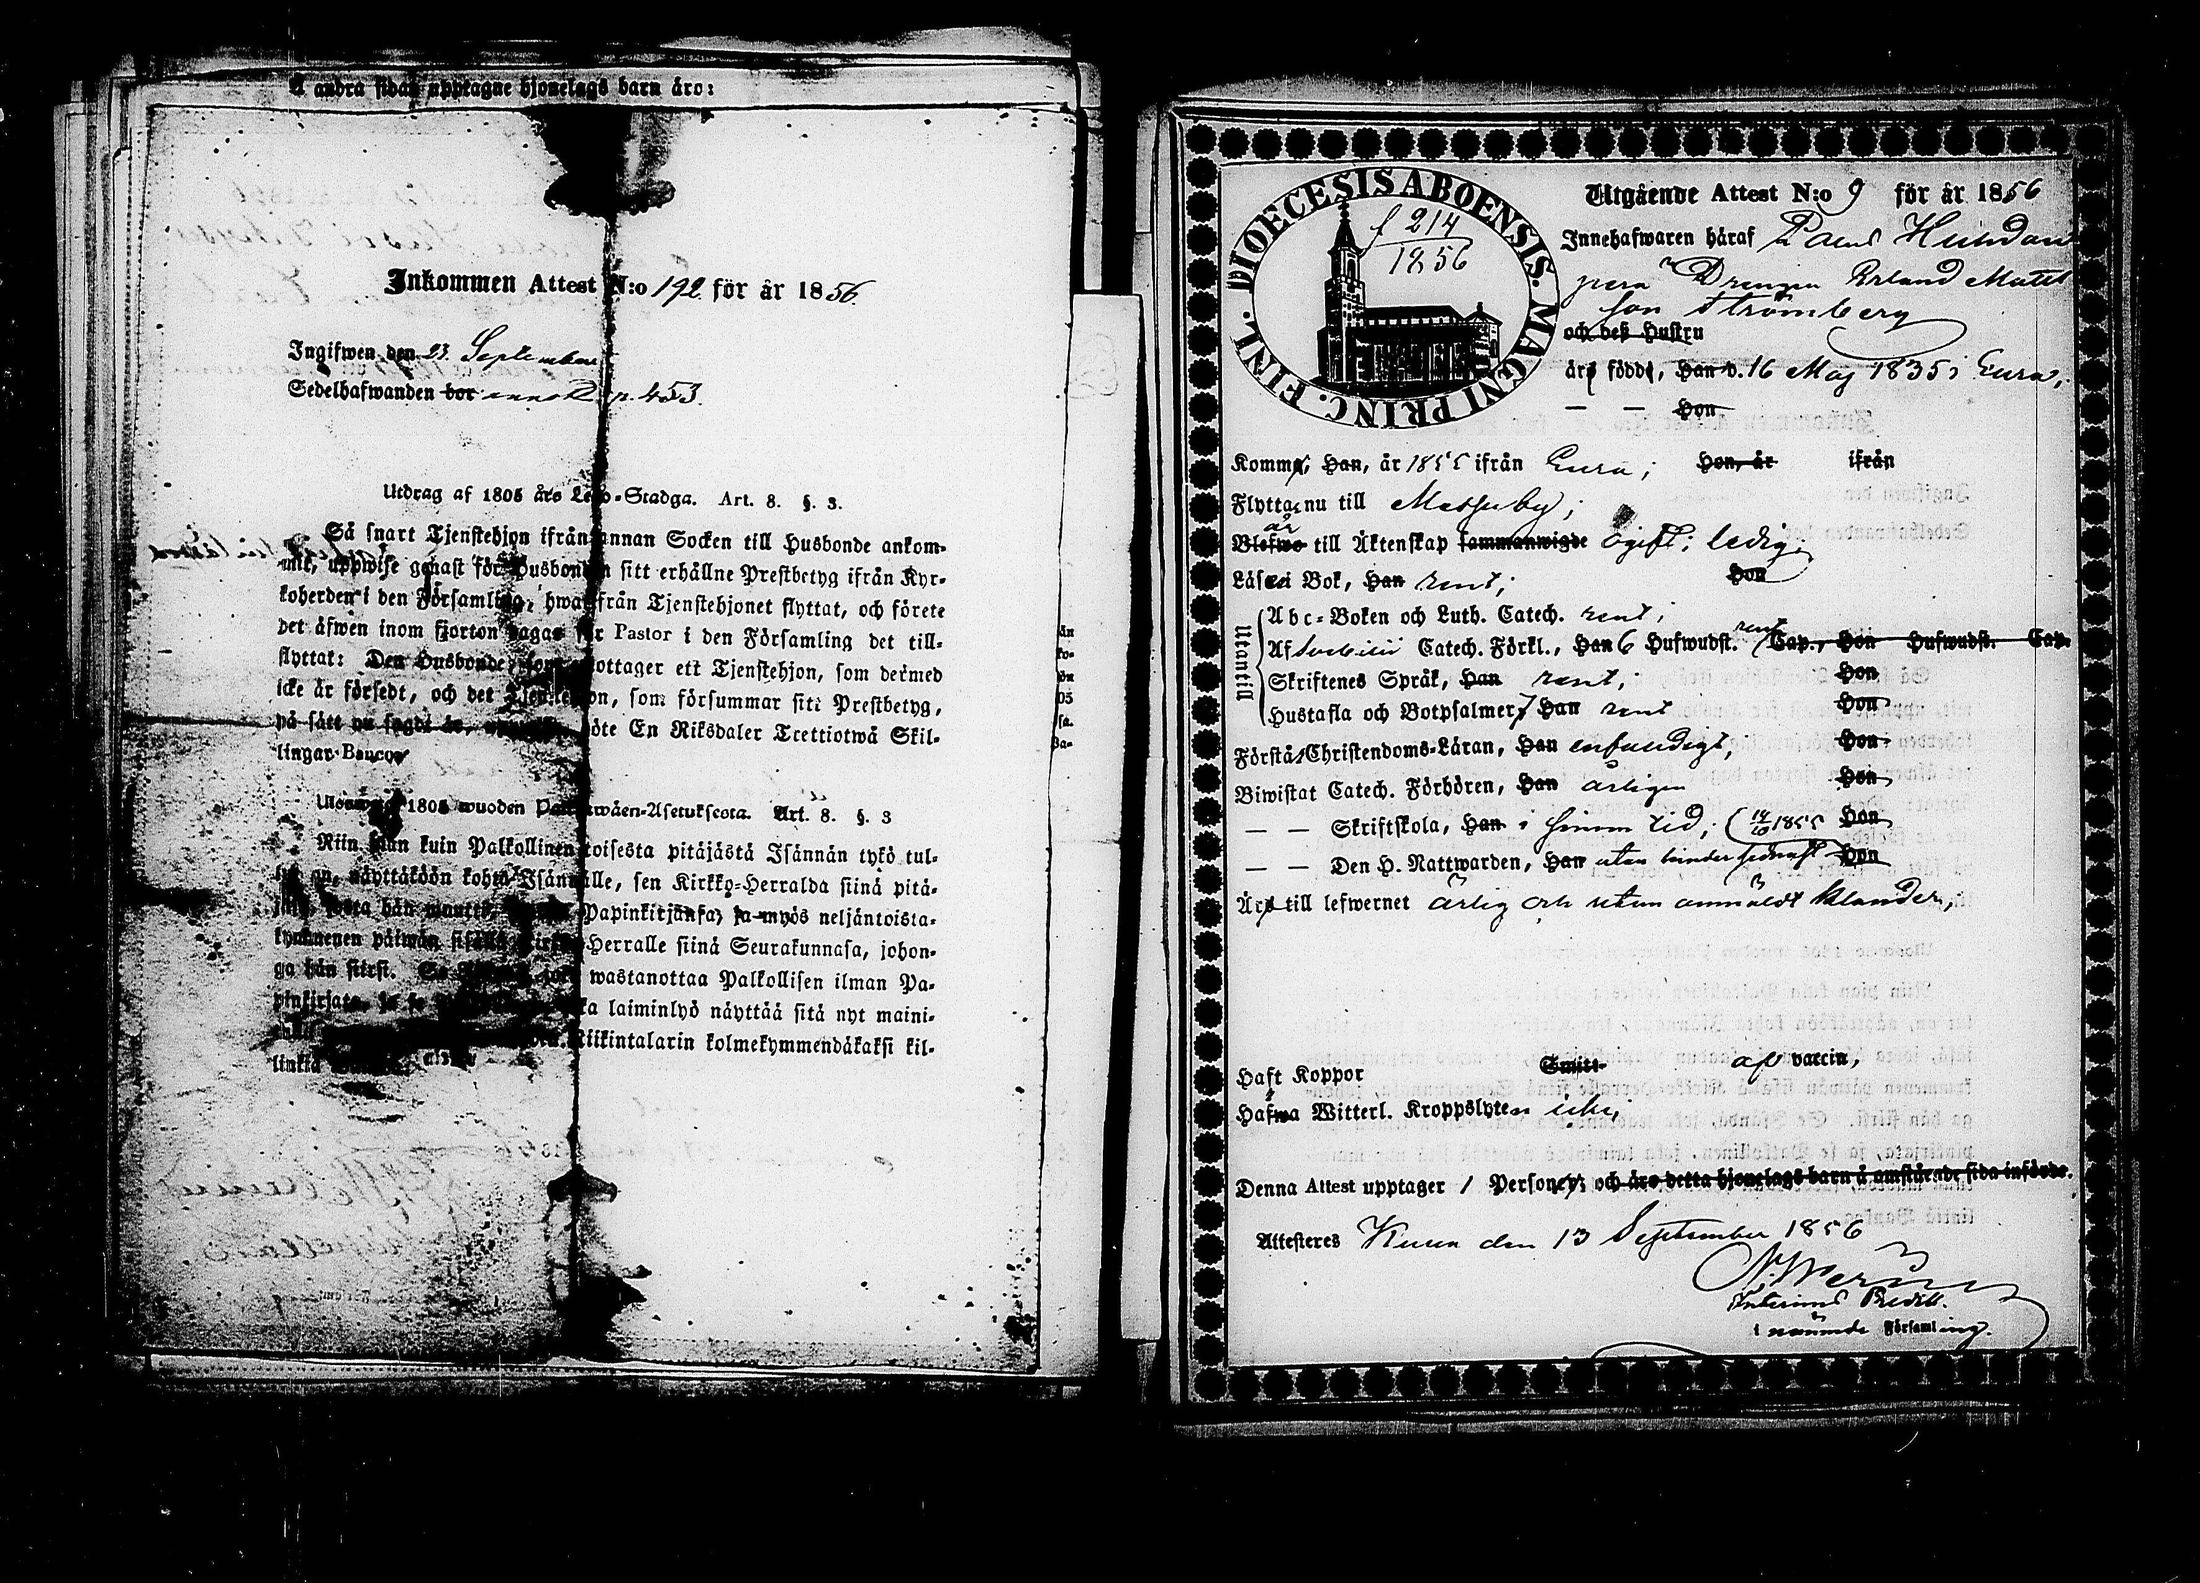 Å andra sidan upptagne hjonelags barn äro:
Inkommen Attest N:o 192 för år 1856
Ingifwen den 23 September
Sedelhafwanden bor p. 453.
Utdrag af 1805 års Lego-Stadga. Art. 8. §. 3.
Så snart Tjenstehjon ifrån annan Socken till Husbonde ankom-
mit, uppwise genast för Husbonden sitt erhållne Prestbetyg ifrån Kyr-
koherden i den Församling, hwarifrån Tjenstehjonet flyttat, och förete
det äfwen inom fjorton dagar för Pastor i den Församling det till-
flyttat: Den Husbonde, som emottager ett Tjenstehjon, som dermed
icke är försedt, och det Tjenstehjon, som försummar sitt Prestbetyg,
på sätt nu sagdt är, böte En Riksdaler Trettiotwå Skil-
lingar Banco.
1805 wuoden Palkkawäen-Asetuksesta. Art. 8. §. 3
Niin pian kuin Palkollinen toisesta pitäjästä Isännän tykö tul-
lut on, näyttäköön kohta Isännälle, sen Kirkko-Herralda siinä pitä-
jäsä, josta hän muutti, Papinkirjansa, ja myös neljäntoista-
kymmenen päiwän sisällä Kirkko-Herralle siinä Seurakunnasa, johon-
ga hän siirsi. Se wastanottaa Palkollisen ilman Pa-
pinkirjata, ja se laiminlyö näyttää sitä nyt maini-
Riikintalarin kolmekymmendäkaksi kil-
linkiä
än
ko-
ön
05
sa.
Ba-
DIOECESIS ABOENSIS. MAGNI PRINC. FINL.
f 214
1856
Utgående Attest N:o 9 för år 1856
Innehafwaren häraf
Drengen Erland Matts
son Strömberg
och dess Hustru
äro födde, Han d. 16 Maj 1835 i Eura,
— — Hon
Komme, Han, år 1855 ifrån Eura; Hon, år ifrån
Flytta nu till Messuby;
är
Blefwo till Äktenskap sammanwigde ogift; ledig.
Läsa i Bok, Han rent; Hon
Utantill
Abc-Boken och Luth. Catech. rent;
Af Svebilii Catech. Förkl., Han 6 Hufwudst. rent Cap., Hon Hufwudst. Cap.
Skriftenes Språk, Han rent; Hon
Hustafla och Botpsalmer, Han rent Hon
Förstå Christendoms-Läran, Han enfaldigt; Hon
Biwistat Catech. Förhören, Han årligen Hon
— — Skriftskola, Han i sinom tid; Hon
— — Den H. Nattwarden, Han utan hinder sednast 14/10 1855 Hon
Äro till lefwernet ärlig och utan anmäldt klander;
Haft Koppor Smitt- af vaccin,
Hafwa Witterl. Kroppslyten icke;
Denna Attest upptager 1 Personer; och äro detta hjonelags barn å omstående sida införde.
Attesteres den 13 September 1856
Interims Predik.
i nämnde Församling.